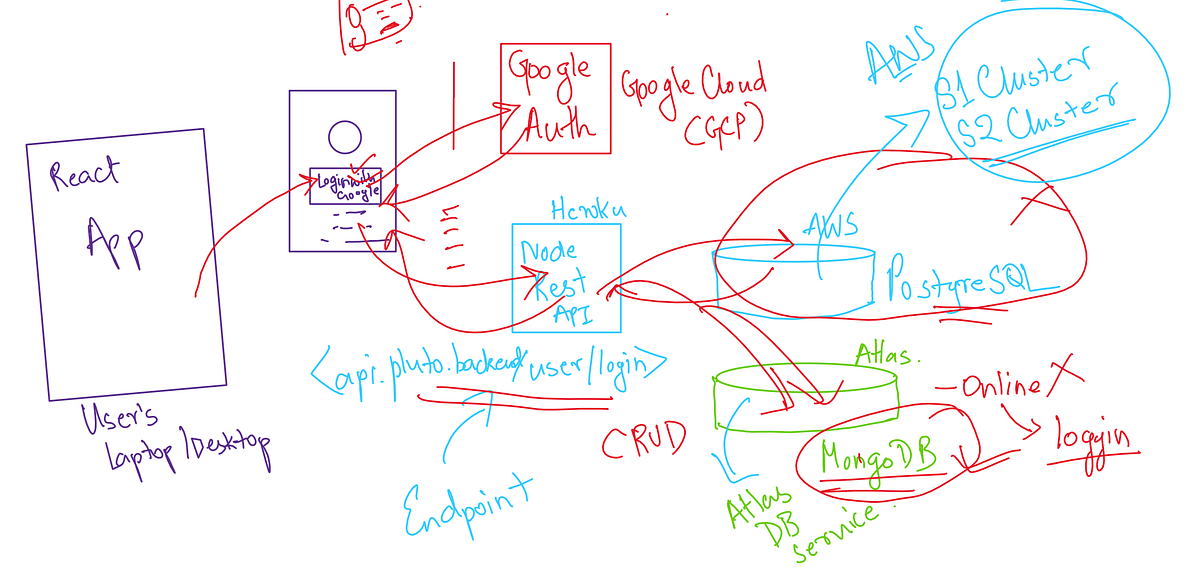 React
App
User's
Laptop/Desktop
Login with
Google
Google
Auth
Google Cloud
(GCP)
Heroku
Node
Rest
API
<api.pluto.backend/user/login>
Endpoint
CRUD
AWS
S1 Cluster
S2 Cluster
AWS
PostgreSQL
Atlas.
MongoDB
Atlas
DB
service.
- Online X
loggin